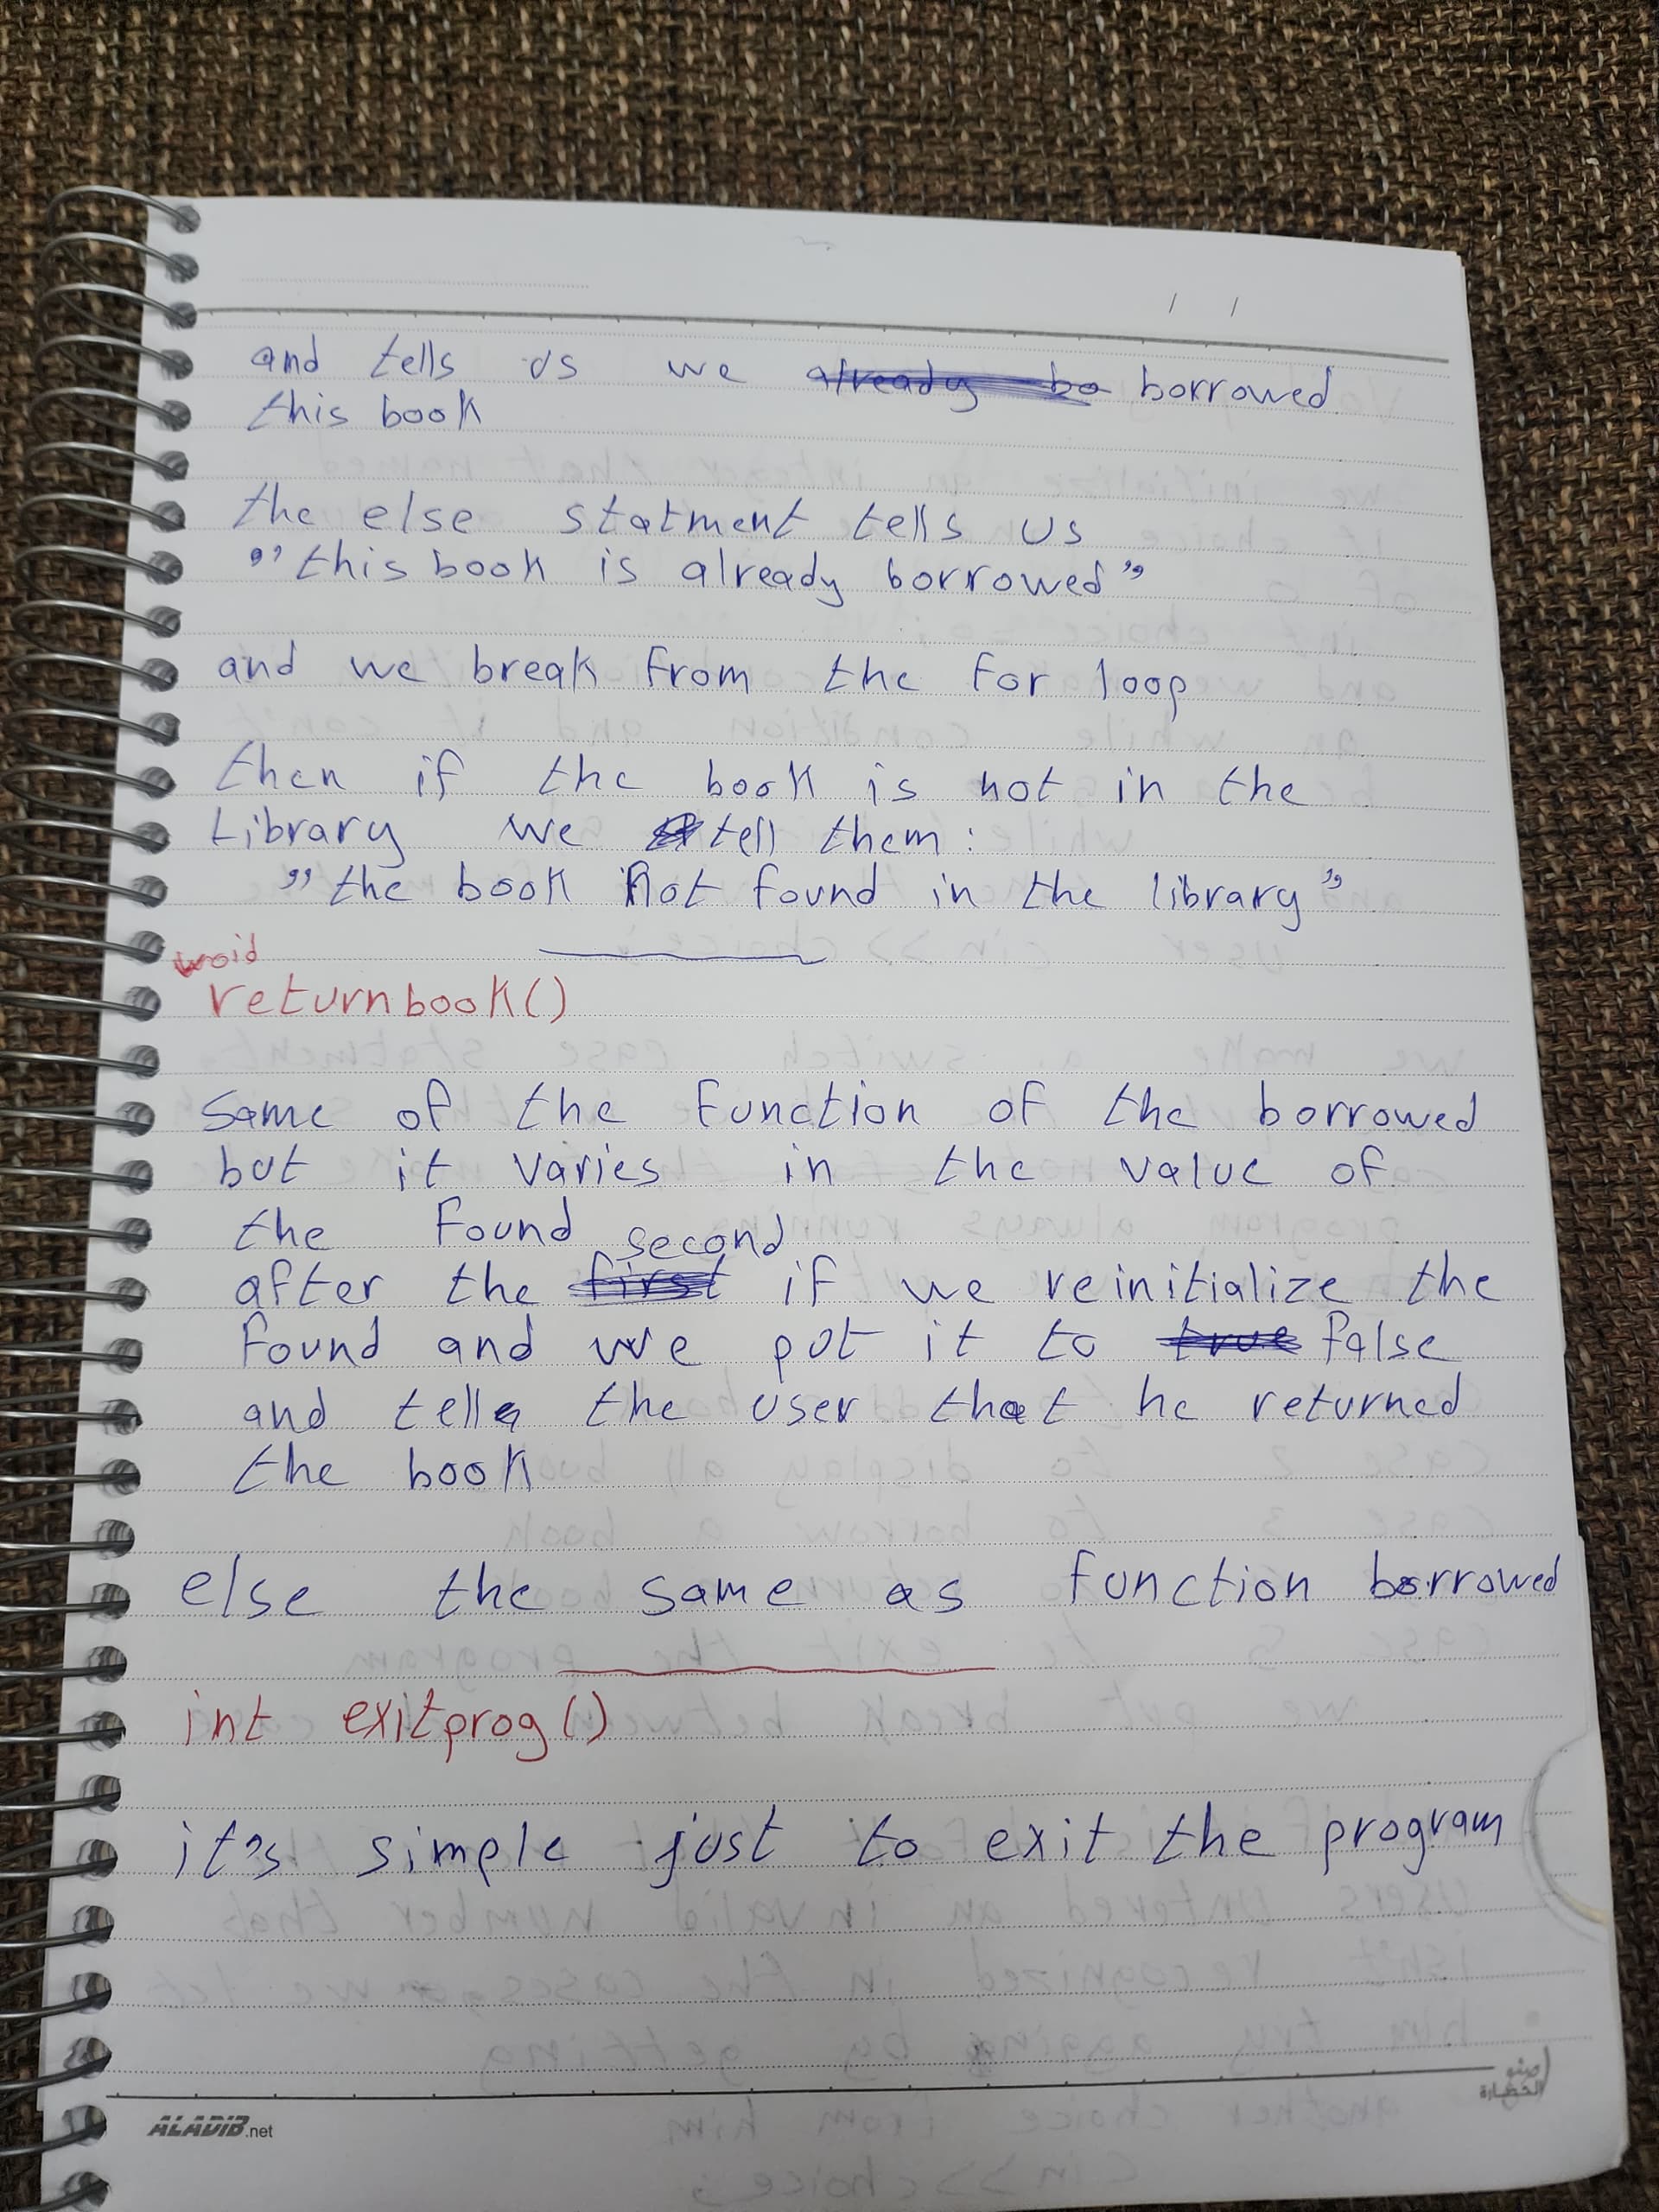 and tells us we already bo borrowed
this book
the else statment tells us
"this book is already borrowed"
and we break from the for loop
then if the book is not in the
Library we tell them:
"the book Not found in the library"
void
returnbook()
same of the function of the borrowed
but it varies in the value of
the found
second
after the first if we reinitialize the
found and we put it to true false
and tell the user that he returned
the book
else the same as function borrowed
int exitprog()
it's simple just to exit the program
ALADIB.net